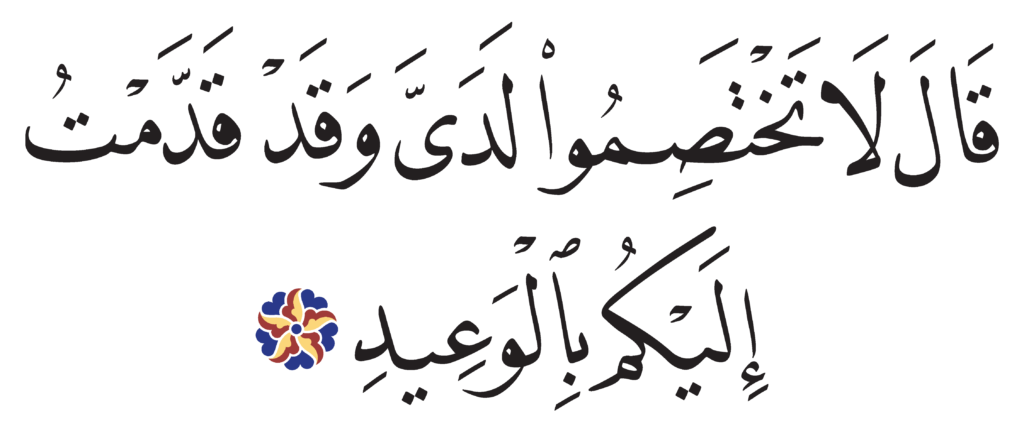 قَالَ لَا تَخْتَصِمُوا۟ لَدَىَّ وَقَدْ قَدَّمْتُ
إِلَيْكُم بِٱلْوَعِيدِ